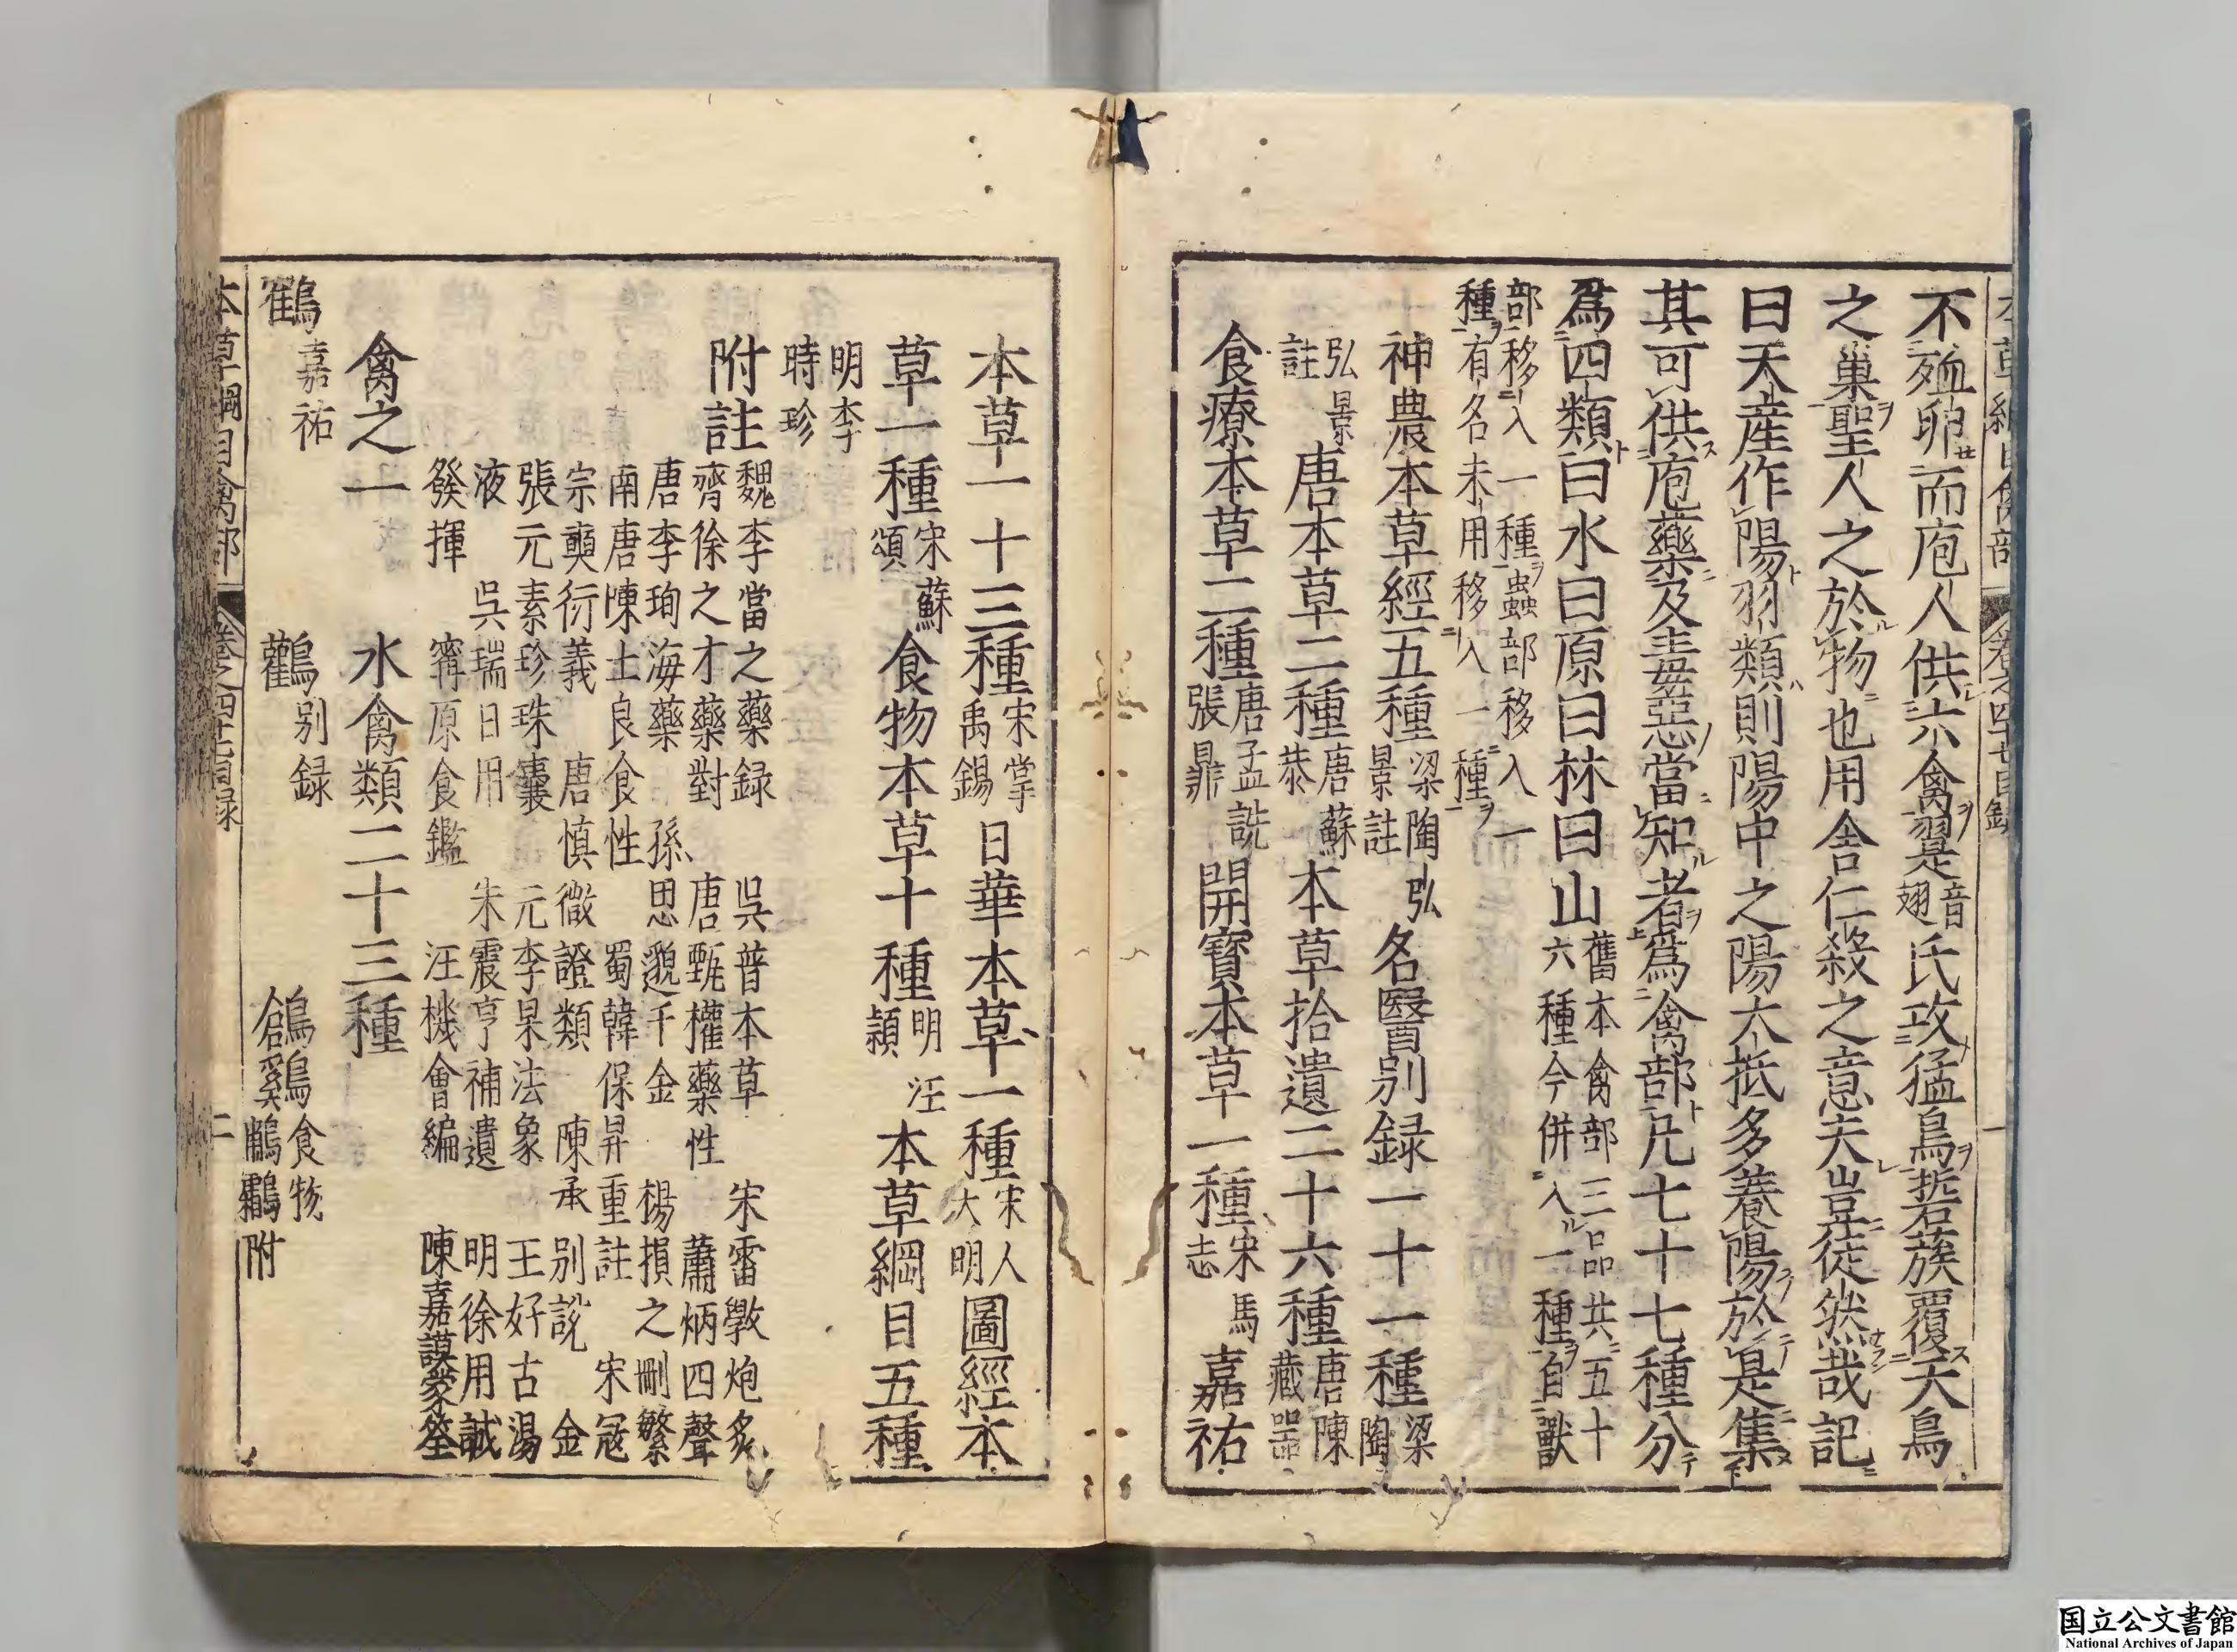 不殈卵而庖人供六禽翨音翅氏攻猛鳥硩蔟覆夭鳥
之巢聖人之於物也用舎仁殺之意夫豈徒然哉記
曰天産作陽羽類則陽中之陽大抵多養陽於是集
其可供庖藥及毒惡當知者爲禽部凡七十七種分
爲四類曰水曰原曰林曰山舊本禽部三品共五十六種今併入一種自獸
部移入一種蟲部移入一種有名未用移入一種
神農本草經五種梁陶弘景註 名醫别録一十一種梁陶
弘景註 唐本草二種唐蘇恭 本草拾遺二十六種唐陳藏噐
食療本草二種唐孟詵張鼎 開寶本草一種宋馬志 嘉祐
本草一十三種宋掌禹錫 日華本草一種宋人大明 圖經本
草一種宋蘇頌 食物本草十種明汪頴 本草綱目五種
明李時珍
附註
魏李當之藥録 吳普本草 宋雷斆炮炙
齊徐之才藥對 唐甄權藥性 蕭炳四聲
唐李珣海藥 孫思邈千金 楊損之刪繁
南唐陳士良食性 蜀韓保昇重註 宋冦
宗奭衍義 唐慎微證類 陳承别說 金
張元素珍珠囊 元李杲法象 王好古湯
液 吳瑞日用 朱震亨補遺 明徐用誠
發揮 寗原食鑑 汪機會編 陳嘉謨蒙筌
禽之一 水禽類二十三種
鶴嘉祐 鸛别録 鶬鷄食物 鸕鷀附
本草綱目禽部 卷之四十七目録 二